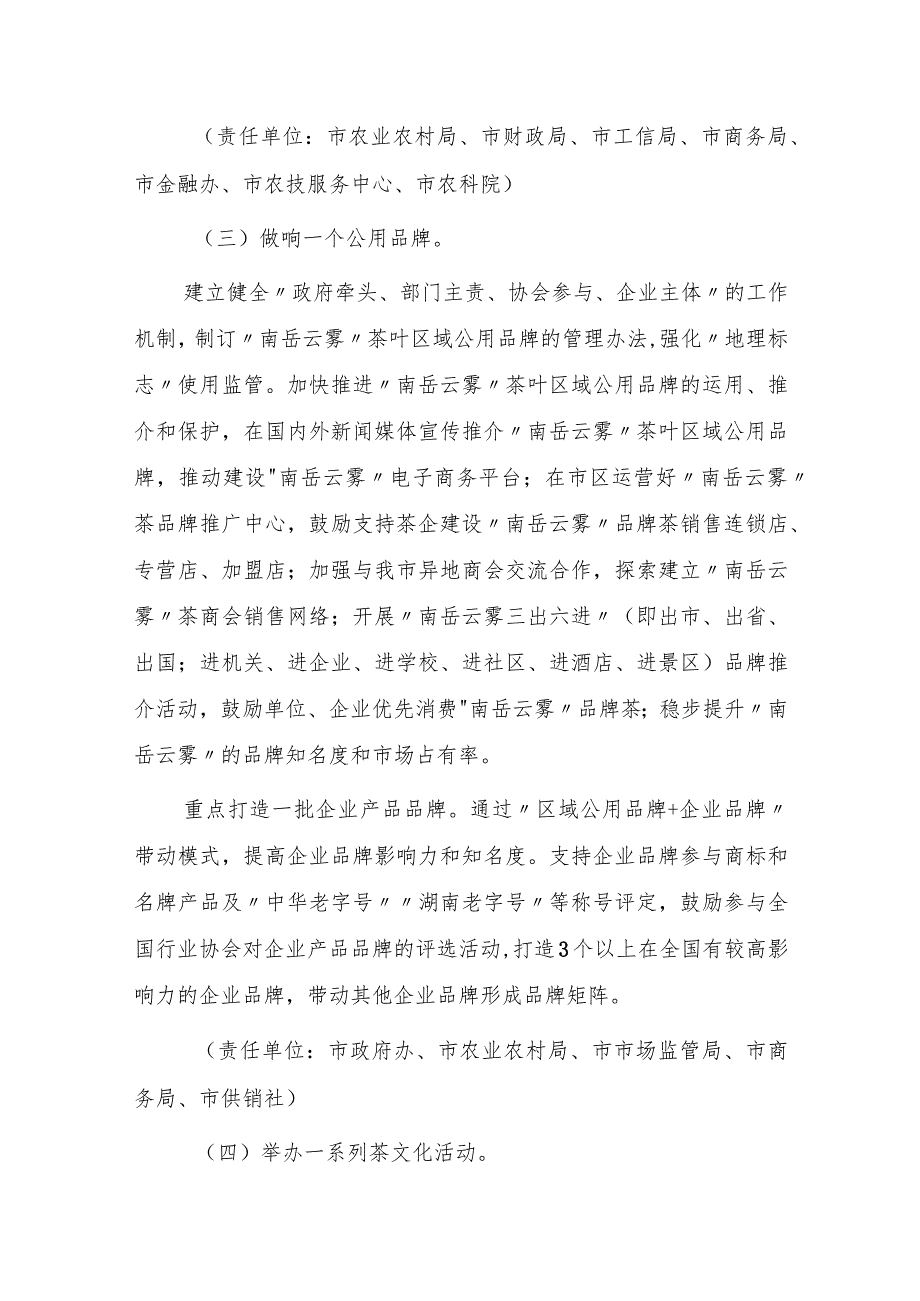 （责任单位：市农业农村局、市财政局、市工信局、市商务局、
市金融办、市农技服务中心、市农科院）
（三）做响一个公用品牌。
建立健全〃政府牵头、部门主责、协会参与、企业主体〃的工作
机制,制订〃南岳云雾〃茶叶区域公用品牌的管理办法,强化〃地理标
志〃使用监管。加快推进〃南岳云雾〃茶叶区域公用品牌的运用、推
介和保护，在国内外新闻媒体宣传推介〃南岳云雾〃茶叶区域公用品
牌，推动建设"南岳云雾〃电子商务平台；在市区运营好〃南岳云雾〃
茶品牌推广中心，鼓励支持茶企建设〃南岳云雾〃品牌茶销售连锁店、
专营店、加盟店；加强与我市异地商会交流合作，探索建立〃南岳云
雾〃茶商会销售网络；开展〃南岳云雾三出六进〃（即出市、出省、
出国；进机关、进企业、进学校、进社区、进酒店、进景区）品牌推
介活动，鼓励单位、企业优先消费"南岳云雾〃品牌茶；稳步提升〃南
岳云雾〃的品牌知名度和市场占有率。
重点打造一批企业产品品牌。通过〃区域公用品牌+企业品牌〃
带动模式，提高企业品牌影响力和知名度。支持企业品牌参与商标和
名牌产品及〃中华老字号〃〃湖南老字号〃等称号评定，鼓励参与全
国行业协会对企业产品品牌的评选活动,打造3个以上在全国有较高影
响力的企业品牌，带动其他企业品牌形成品牌矩阵。
（责任单位：市政府办、市农业农村局、市市场监管局、市商
务局、市供销社）
（四）举办一系列茶文化活动。